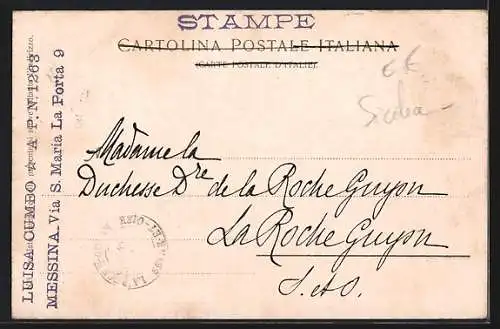 STAMPE
CARTOLINA POSTALE ITALIANA
(CARTE POSTALE D'ITALIE)
Sicilia
Madame la
Duchesse Dre de la Roche Guyon
La Roche Guyon
S. et O.
LUISA CUMBO A P. N. 1263
MESSINA. Via S. Maria La Porta 9